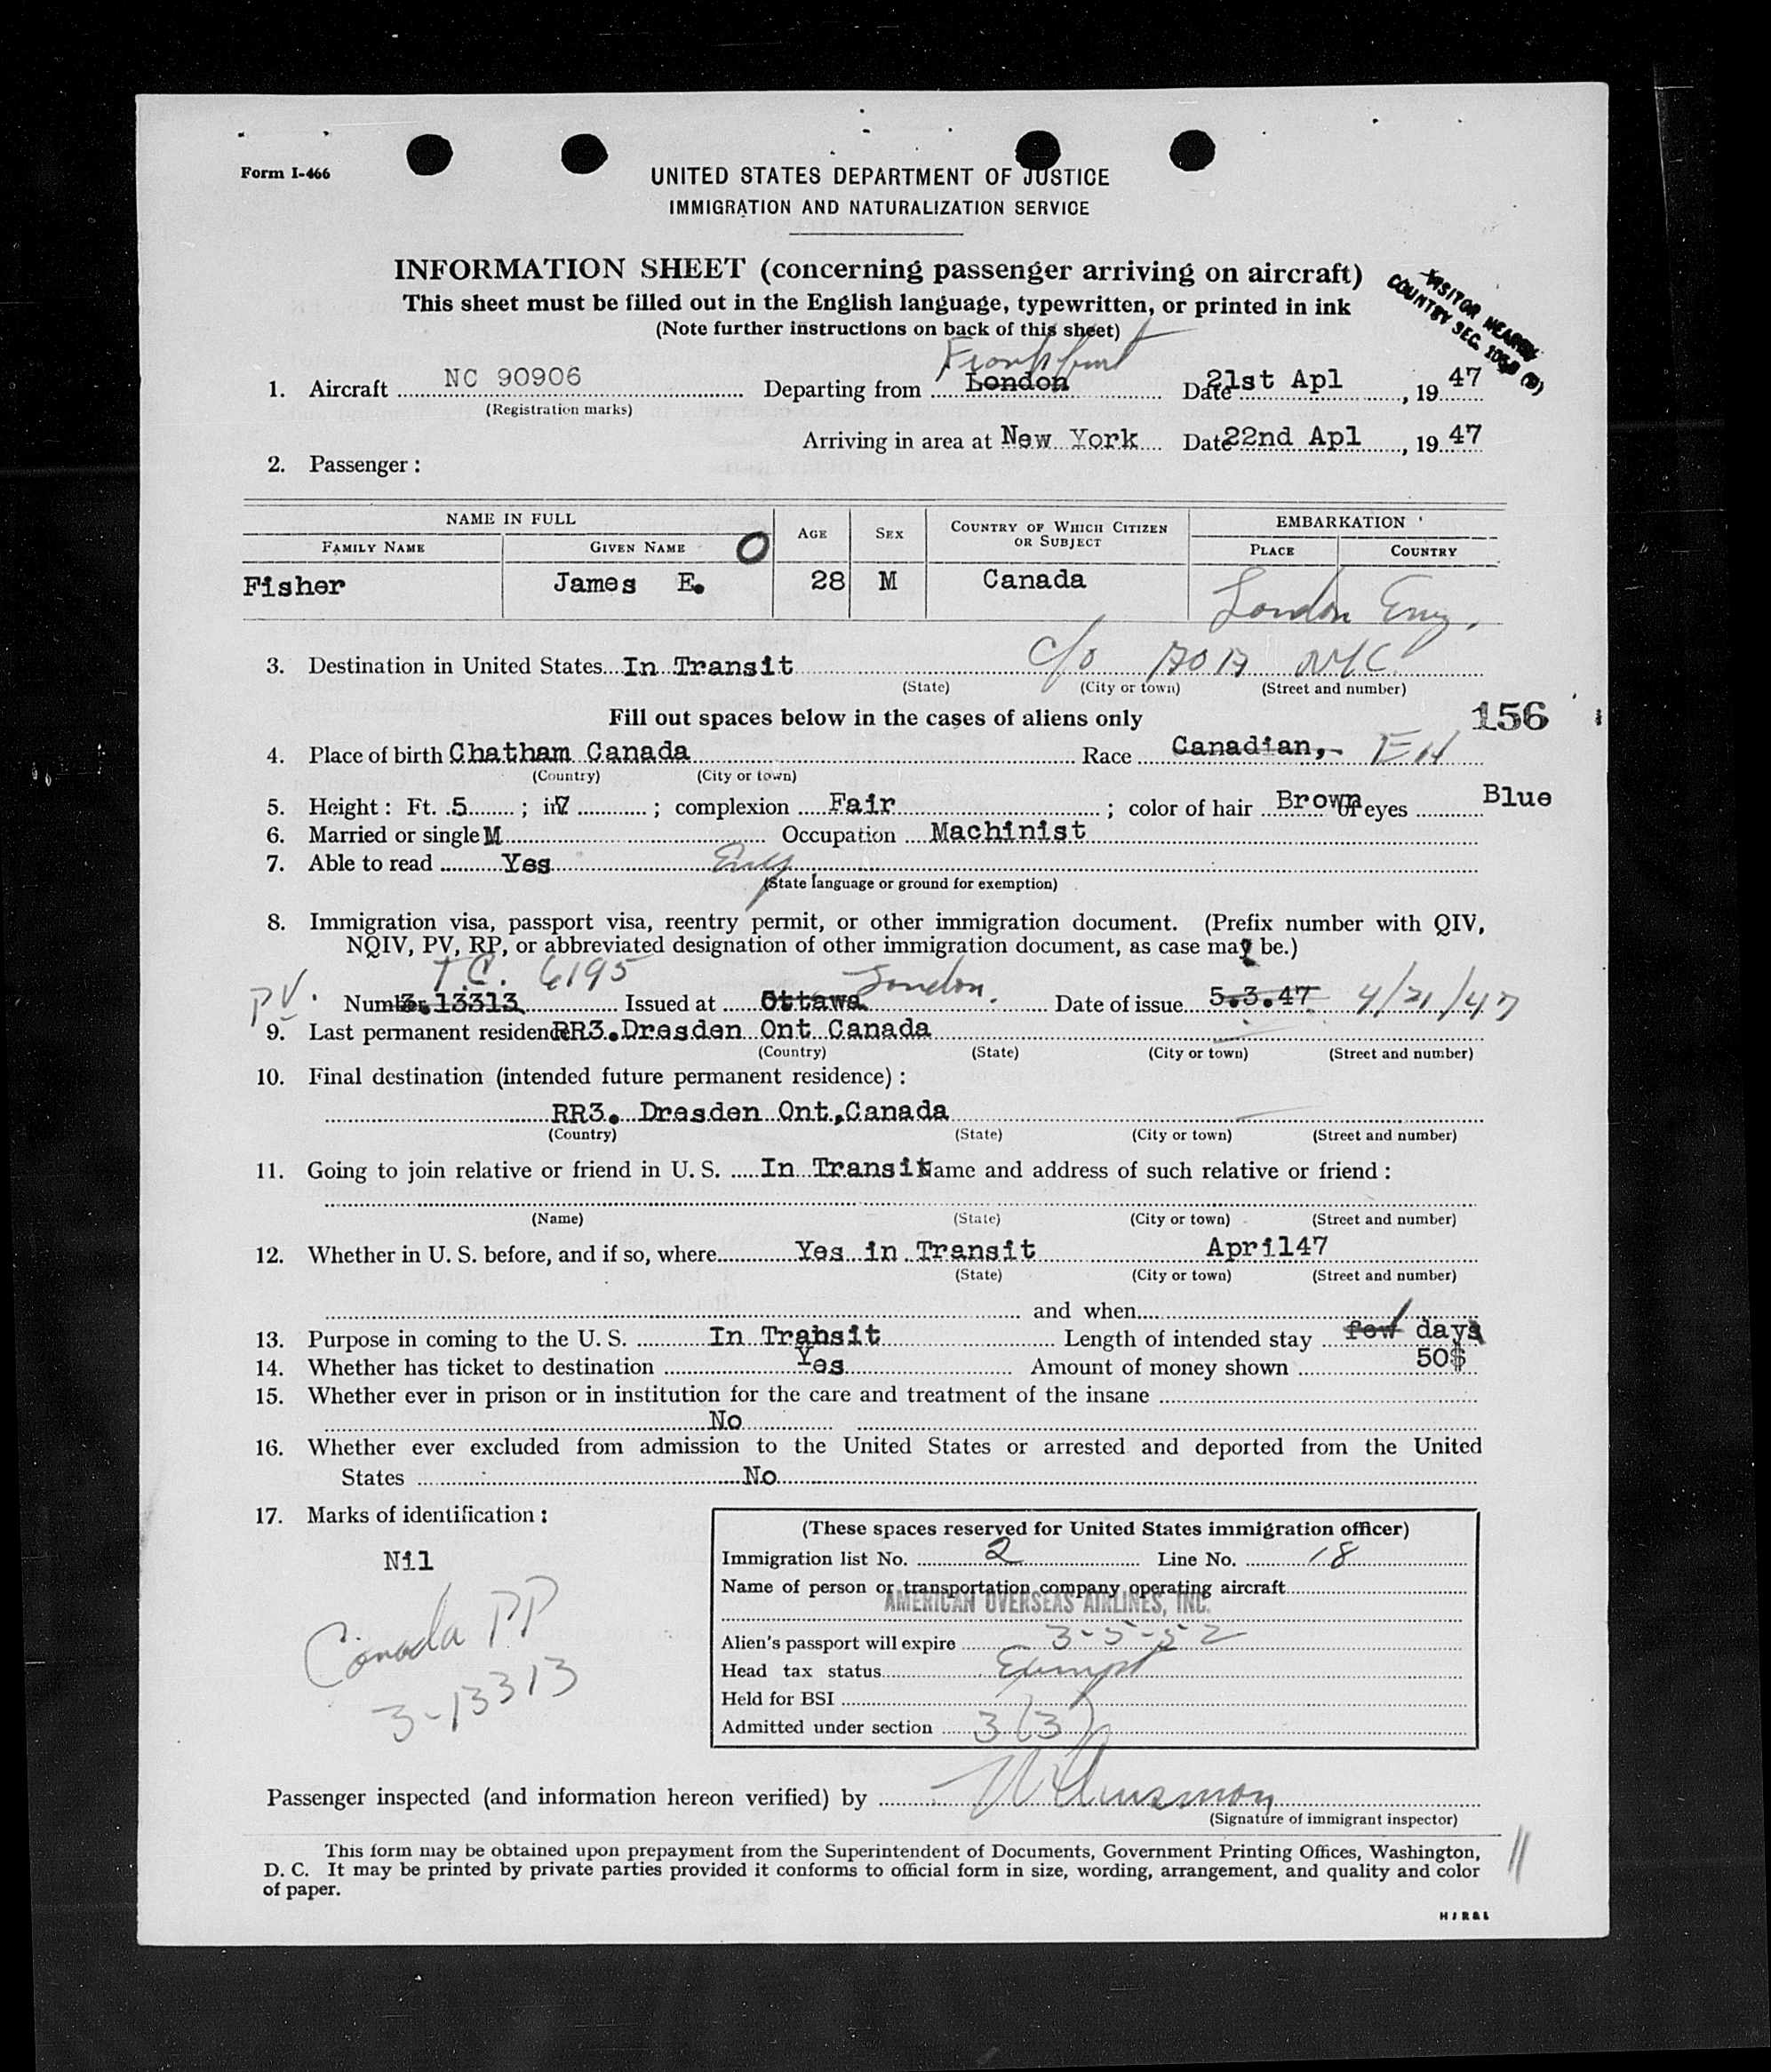 Form I-466
UNITED STATES DEPARTMENT OF JUSTICE
IMMIGRATION AND NATURALIZATION SERVICE
INFORMATION SHEET (concerning passenger arriving on aircraft)
This sheet must be filled out in the English language, typewritten, or printed in ink
(Note further instructions on back of this sheet)
VISITOR
COUNTRY SEC.
Frankfurt
1. Aircraft NC 90906 Departing from London Date 21st Apl, 19 47
(Registration marks)
Arriving in area at New York Date 22nd Apl, 19 47
2. Passenger :
NAME IN FULL AGE SEX COUNTRY OF WHICH CITIZEN OR SUBJECT EMBARKATION
FAMILY NAME GIVEN NAME PLACE COUNTRY
O
Fisher James E. 28 M Canada London Eng.
3. Destination in United States In Transit c/o N.Y.C.
(State) (City or town) (Street and number)
Fill out spaces below in the cases of aliens only 156
4. Place of birth Chatham Canada Race Canadian,
(Country) (City or town)
5. Height : Ft. 5 ; in 7 ; complexion Fair ; color of hair Brown of eyes Blue
6. Married or single M Occupation Machinist
7. Able to read Yes Eng
(State language or ground for exemption)
8. Immigration visa, passport visa, reentry permit, or other immigration document. (Prefix number with QIV,
NQIV, PV, RP, or abbreviated designation of other immigration document, as case may be.)
T.C. 6195 London.
PV. Number 3.13313 Issued at Ottawa Date of issue 5.3.47 4/21/47
9. Last permanent residence RR3. Dresden Ont Canada
(Country) (State) (City or town) (Street and number)
10. Final destination (intended future permanent residence) :
RR3. Dresden Ont.,Canada
(Country) (State) (City or town) (Street and number)
11. Going to join relative or friend in U. S. In Transit Name and address of such relative or friend :
(Name) (State) (City or town) (Street and number)
12. Whether in U. S. before, and if so, where Yes in Transit April47
(State) (City or town) (Street and number)
and when
13. Purpose in coming to the U. S. In Transit Length of intended stay few days
14. Whether has ticket to destination Yes Amount of money shown 50$
15. Whether ever in prison or in institution for the care and treatment of the insane
No
16. Whether ever excluded from admission to the United States or arrested and deported from the United
States No
17. Marks of identification :
Nil
Canada PP
3-13313
(These spaces reserved for United States immigration officer)
Immigration list No. 2 Line No. 18
Name of person or transportation company operating aircraft
AMERICAN OVERSEAS AIRLINES, INC.
Alien's passport will expire 3-5-52
Head tax status Exempt
Held for BSI
Admitted under section 3(3)
Passenger inspected (and information hereon verified) by
(Signature of immigrant inspector)
This form may be obtained upon prepayment from the Superintendent of Documents, Government Printing Offices, Washington,
D. C. It may be printed by private parties provided it conforms to official form in size, wording, arrangement, and quality and color
of paper.